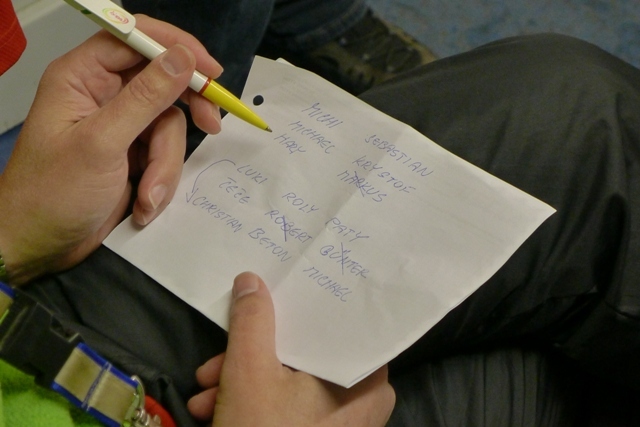 MICHI SEBASTIAN
MICHAEL KRYSTOF
MARKUS
LUKI ROLY PATY
ROBERT GÜNTER
CHRISTIAN BETON MICHAEL